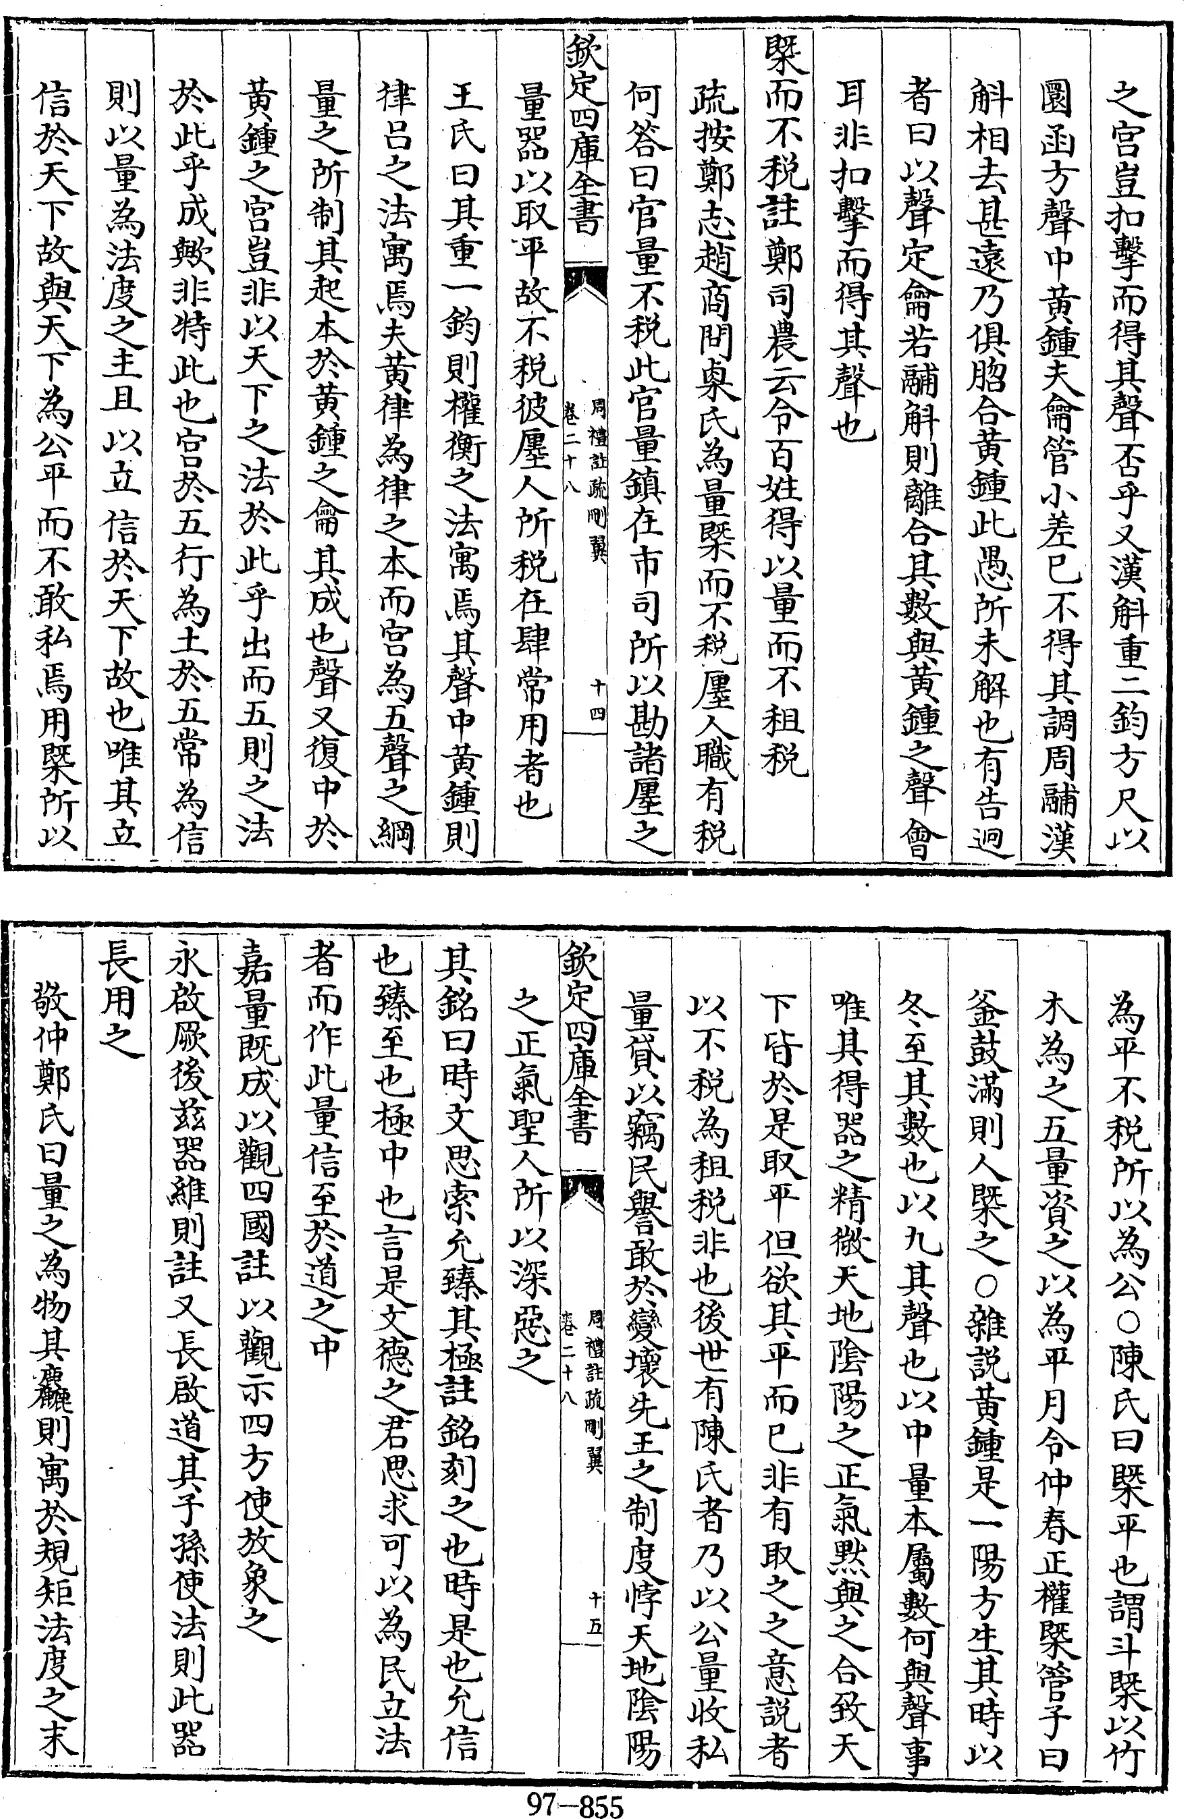 之宫豈扣擊而得其聲否乎又漢斛重二鈞方尺以
圜函方聲中黄鍾夫龠管小差已不得其調周鬴漢
斛相去甚逺乃俱脗合黄鍾此愚所未解也有告逈
者曰以聲定龠若鬴斛則離合其數與黄鍾之聲會
耳非扣擊而得其聲也
槩而不税註鄭司農云令百姓得以量而不租税
疏按鄭志趙商問㮚氏為量槩而不税廛人職有税
何答曰官量不税此官量鎮在市司所以勘諸廛之
欽定四庫全書
周禮註疏刪翼
卷二十八
十四
量器以取平故不税彼廛人所税在肆常用者也
王氏曰其重一鈞則權衡之法寓焉其聲中黄鍾則
律吕之法寓焉夫黄律為律之本而宫為五聲之綱
量之所制其起本於黄鍾之龠其成也聲又復中於
黄鍾之宫豈非以天下之法於此乎出而五則之法
於此乎成歟非特此也宫於五行為土於五常為信
則以量為法度之主且以立信於天下故也唯其立
信於天下故與天下為公平而不敢私焉用槩所以
為平不税所以為公○陳氏曰槩平也謂斗槩以竹
木為之五量資之以為平月令仲春正權槩管子曰
釜鼓滿則人槩之○雜説黄鍾是一陽方生其時以
冬至其數也以九其聲也以中量本屬數何與聲事
唯其得器之精微天地隂陽之正氣黙與之合致天
下皆於是取平但欲其平而已非有取之之意説者
以不税為租税非也後世有陳氏者乃以公量收私
量貸以竊民譽敢於變壞先王之制度悖天地隂陽
欽定四庫全書
周禮註疏刪翼
卷二十八
十五
之正氣聖人所以深惡之
其銘曰時文思索允臻其極註銘刻之也時是也允信
也臻至也極中也言是文德之君思求可以為民立法
者而作此量信至於道之中
嘉量既成以觀四國註以觀示四方使放象之
永啟厥後兹器維則註又長啟道其子孫使法則此器
長用之
敬仲鄭氏曰量之為物其麤則寓於規矩法度之末
97-855